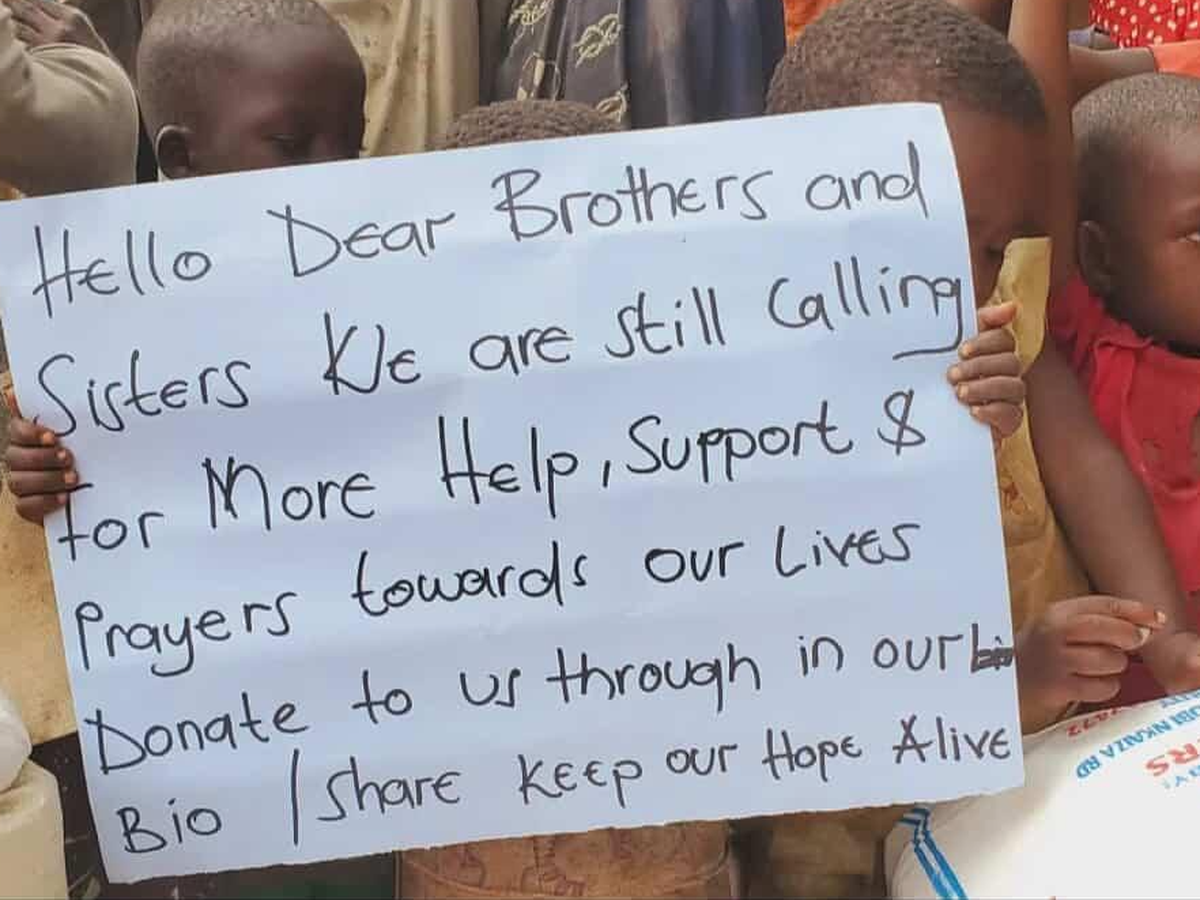 Hello Dear Brothers and
Sisters We are still Calling
for More Help, Support &
Prayers towards our Lives
Donate to us through in our
Bio / share keep our Hope Alive
NKAIZA RD